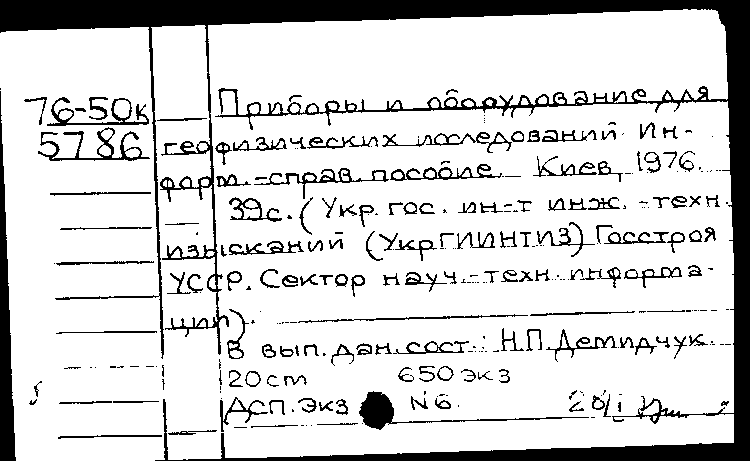 76-50к Приборы и оборудование для
5786 геофизических исследований. Ин-
форм.-справ. пособие. Киев, 1976.
39с. (Укр. гос. ин-т инж.-техн.
изысканий (УкрГИИНТИЗ) Госстроя
УССР. Сектор науч.-техн. информа-
ции).
В вып. дан. сост.: Н.П. Демидчук.
20cm 650 экз
ДСП. Экз N6.